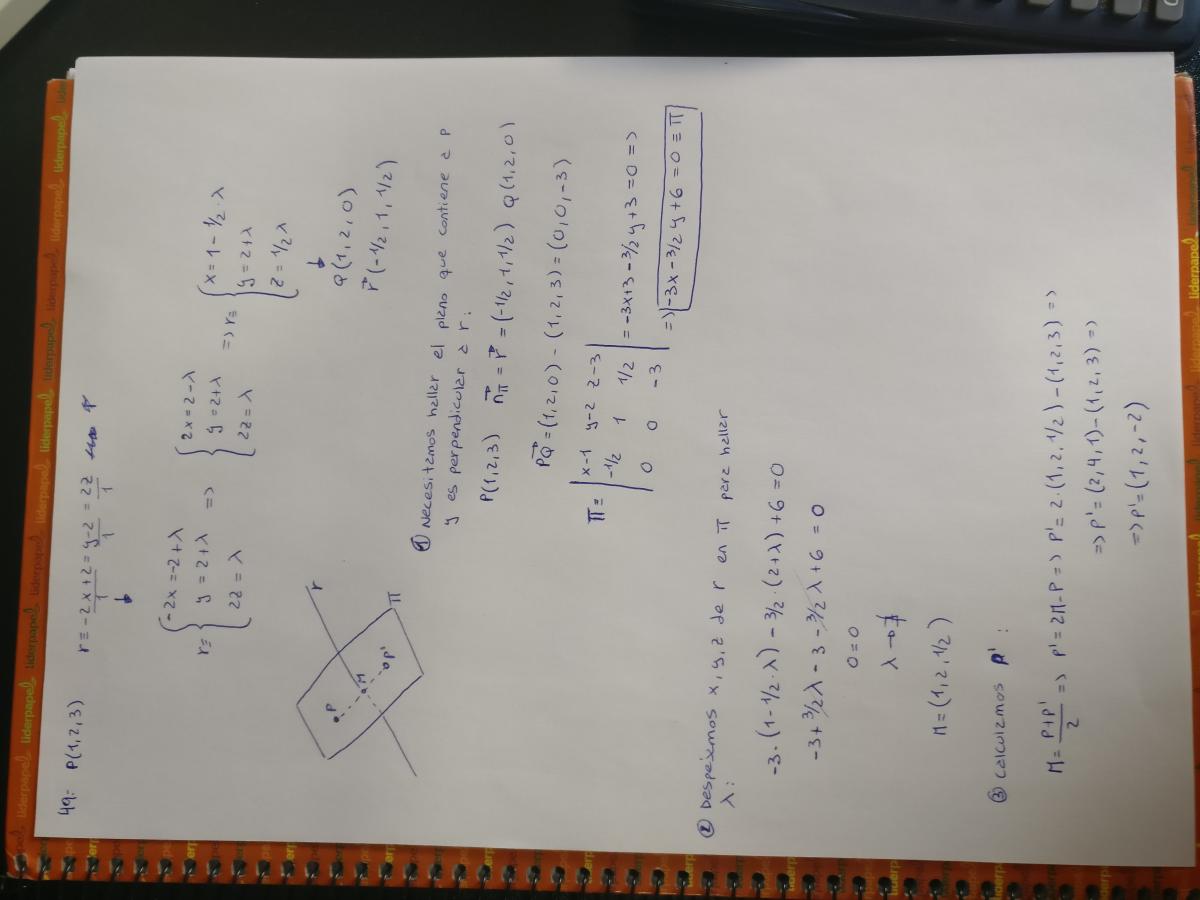 49: P(1,2,3)
r≡ -2x+2/1 = y-2/1 = 2z/1
r≡ { -2x=-2+λ
y=2+λ
2z=λ
=>
{ 2x=2-λ
y=2+λ
2z=λ
=> r≡
{ x=1-1/2·λ
y=2+λ
z=1/2λ
Q(1,2,0)
r⃗(-1/2,1,1/2)
r
P
M
P'
π
① Necesitamos hallar el plano que contiene a P
y es perpendicular a r:
P(1,2,3) n⃗π = r⃗ = (-1/2,1,1/2) Q(1,2,0)
PQ⃗ = (1,2,0) - (1,2,3) = (0,0,-3)
π≡ | x-1 y-2 z-3 |
| -1/2 1 1/2 | = -3x+3-3/2y+3=0 =>
| 0 0 -3 | => -3x-3/2y+6=0≡π
② Despejemos x,y,z de r en π para hallar
λ:
-3·(1-1/2·λ)-3/2·(2+λ)+6=0
-3+3/2λ-3-3/2λ+6=0
0=0
λ→∄
M=(1,2,1/2)
③ Calculamos P':
M= P+P'/2 => P'=2M-P => P'=2·(1,2,1/2)-(1,2,3) =>
=> P'=(2,4,1)-(1,2,3) =>
=> P'=(1,2,-2)
liderpapel